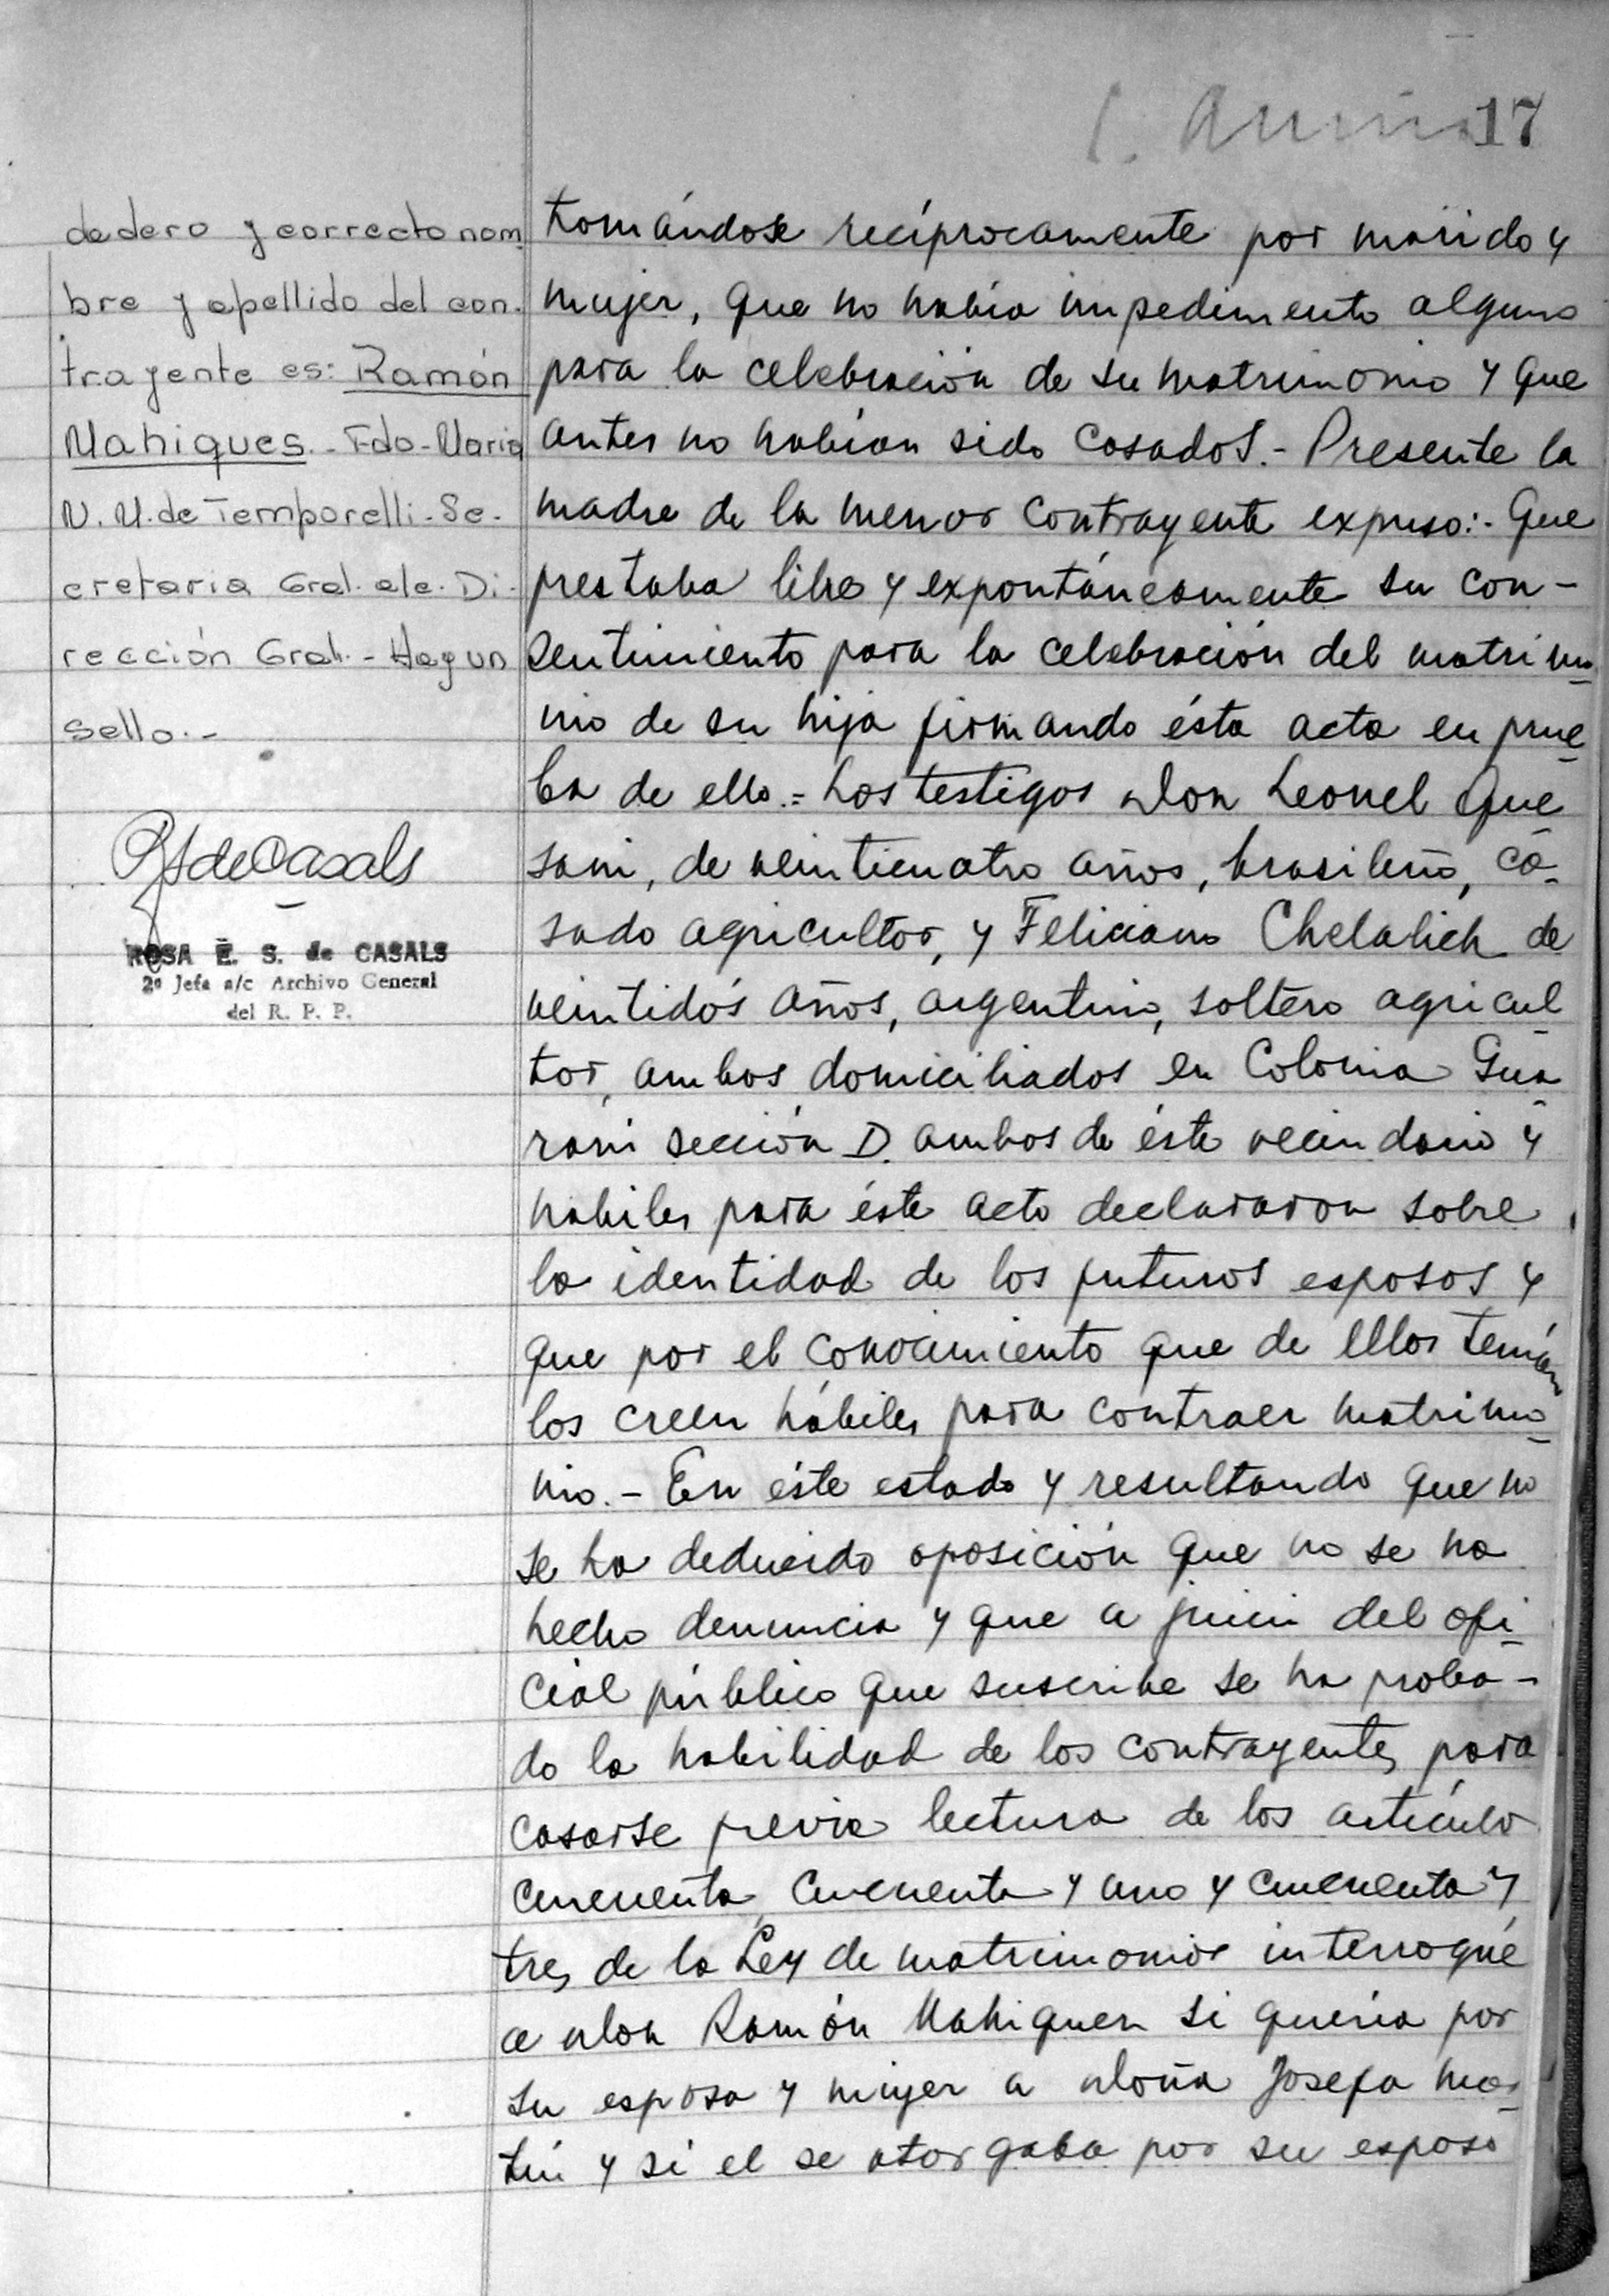 17
dadero y correcto nom
bre y apellido del con.
trayente es: Ramón
Mahiques.- Fdo-Maria
N. M. de Temporelli.-Se.
cretaria Gral. a/c. Di.
rección Gral.- Hay un
sello.-
ROSA E. S. de CASALS
2ª Jefa a/c Archivo General
del R. P. P.
tomándose recíprocamente por marido y
mujer, que no había impedimento alguno
para la celebración de su matrimonio y que
antes no habían sido casados.- Presente la
madre de la menor contrayente expuso:- Que
prestaba libre y expontáneamente su con-
sentimiento para la celebración del matrimo
nio de su hija firmando ésta acta en prue
ba de ello.= Los testigos don Leonel Que
sani, de veinticuatro años, brasileño, ca-
sado agricultor, y Feliciano Chelalich de
veintidós años, argentino, soltero agricul
tor, ambos domiciliados en Colonia Gua
raní sección D. ambos de éste vecindario y
habiles para éste acto declararon sobre
la identidad de los futuros esposos y
que por el conocimiento que de ellos tenían
los creen hábiles para contraer matrimo
nio.- En éste estado y resultando que no
se ha deducido oposición que no se ha
hecho denuncia y que a juicio del ofi
cial público que suscribe se ha proba-
do la habilidad de los contrayentes para
casarse previa lectura de los artículo
cincuenta, cincuenta y uno y cincuenta y
tres de la Ley de matrimonios interrogué
a don Ramón Mahiques si quería por
su esposa y mujer a doña Josefa Mar
tin y si el se otorgaba por su esposo